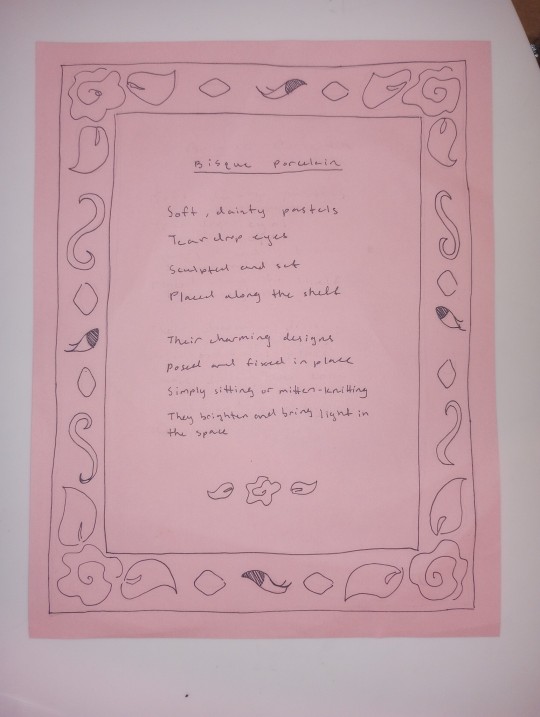 Bisque Porcelain
Soft, dainty pastels
Teardrop eyes
Sculpted and set
Placed along the shelf
Their charming designs
posed and fixed in place
Simply sitting or mitten-knitting
They brighten and bring light in
the space